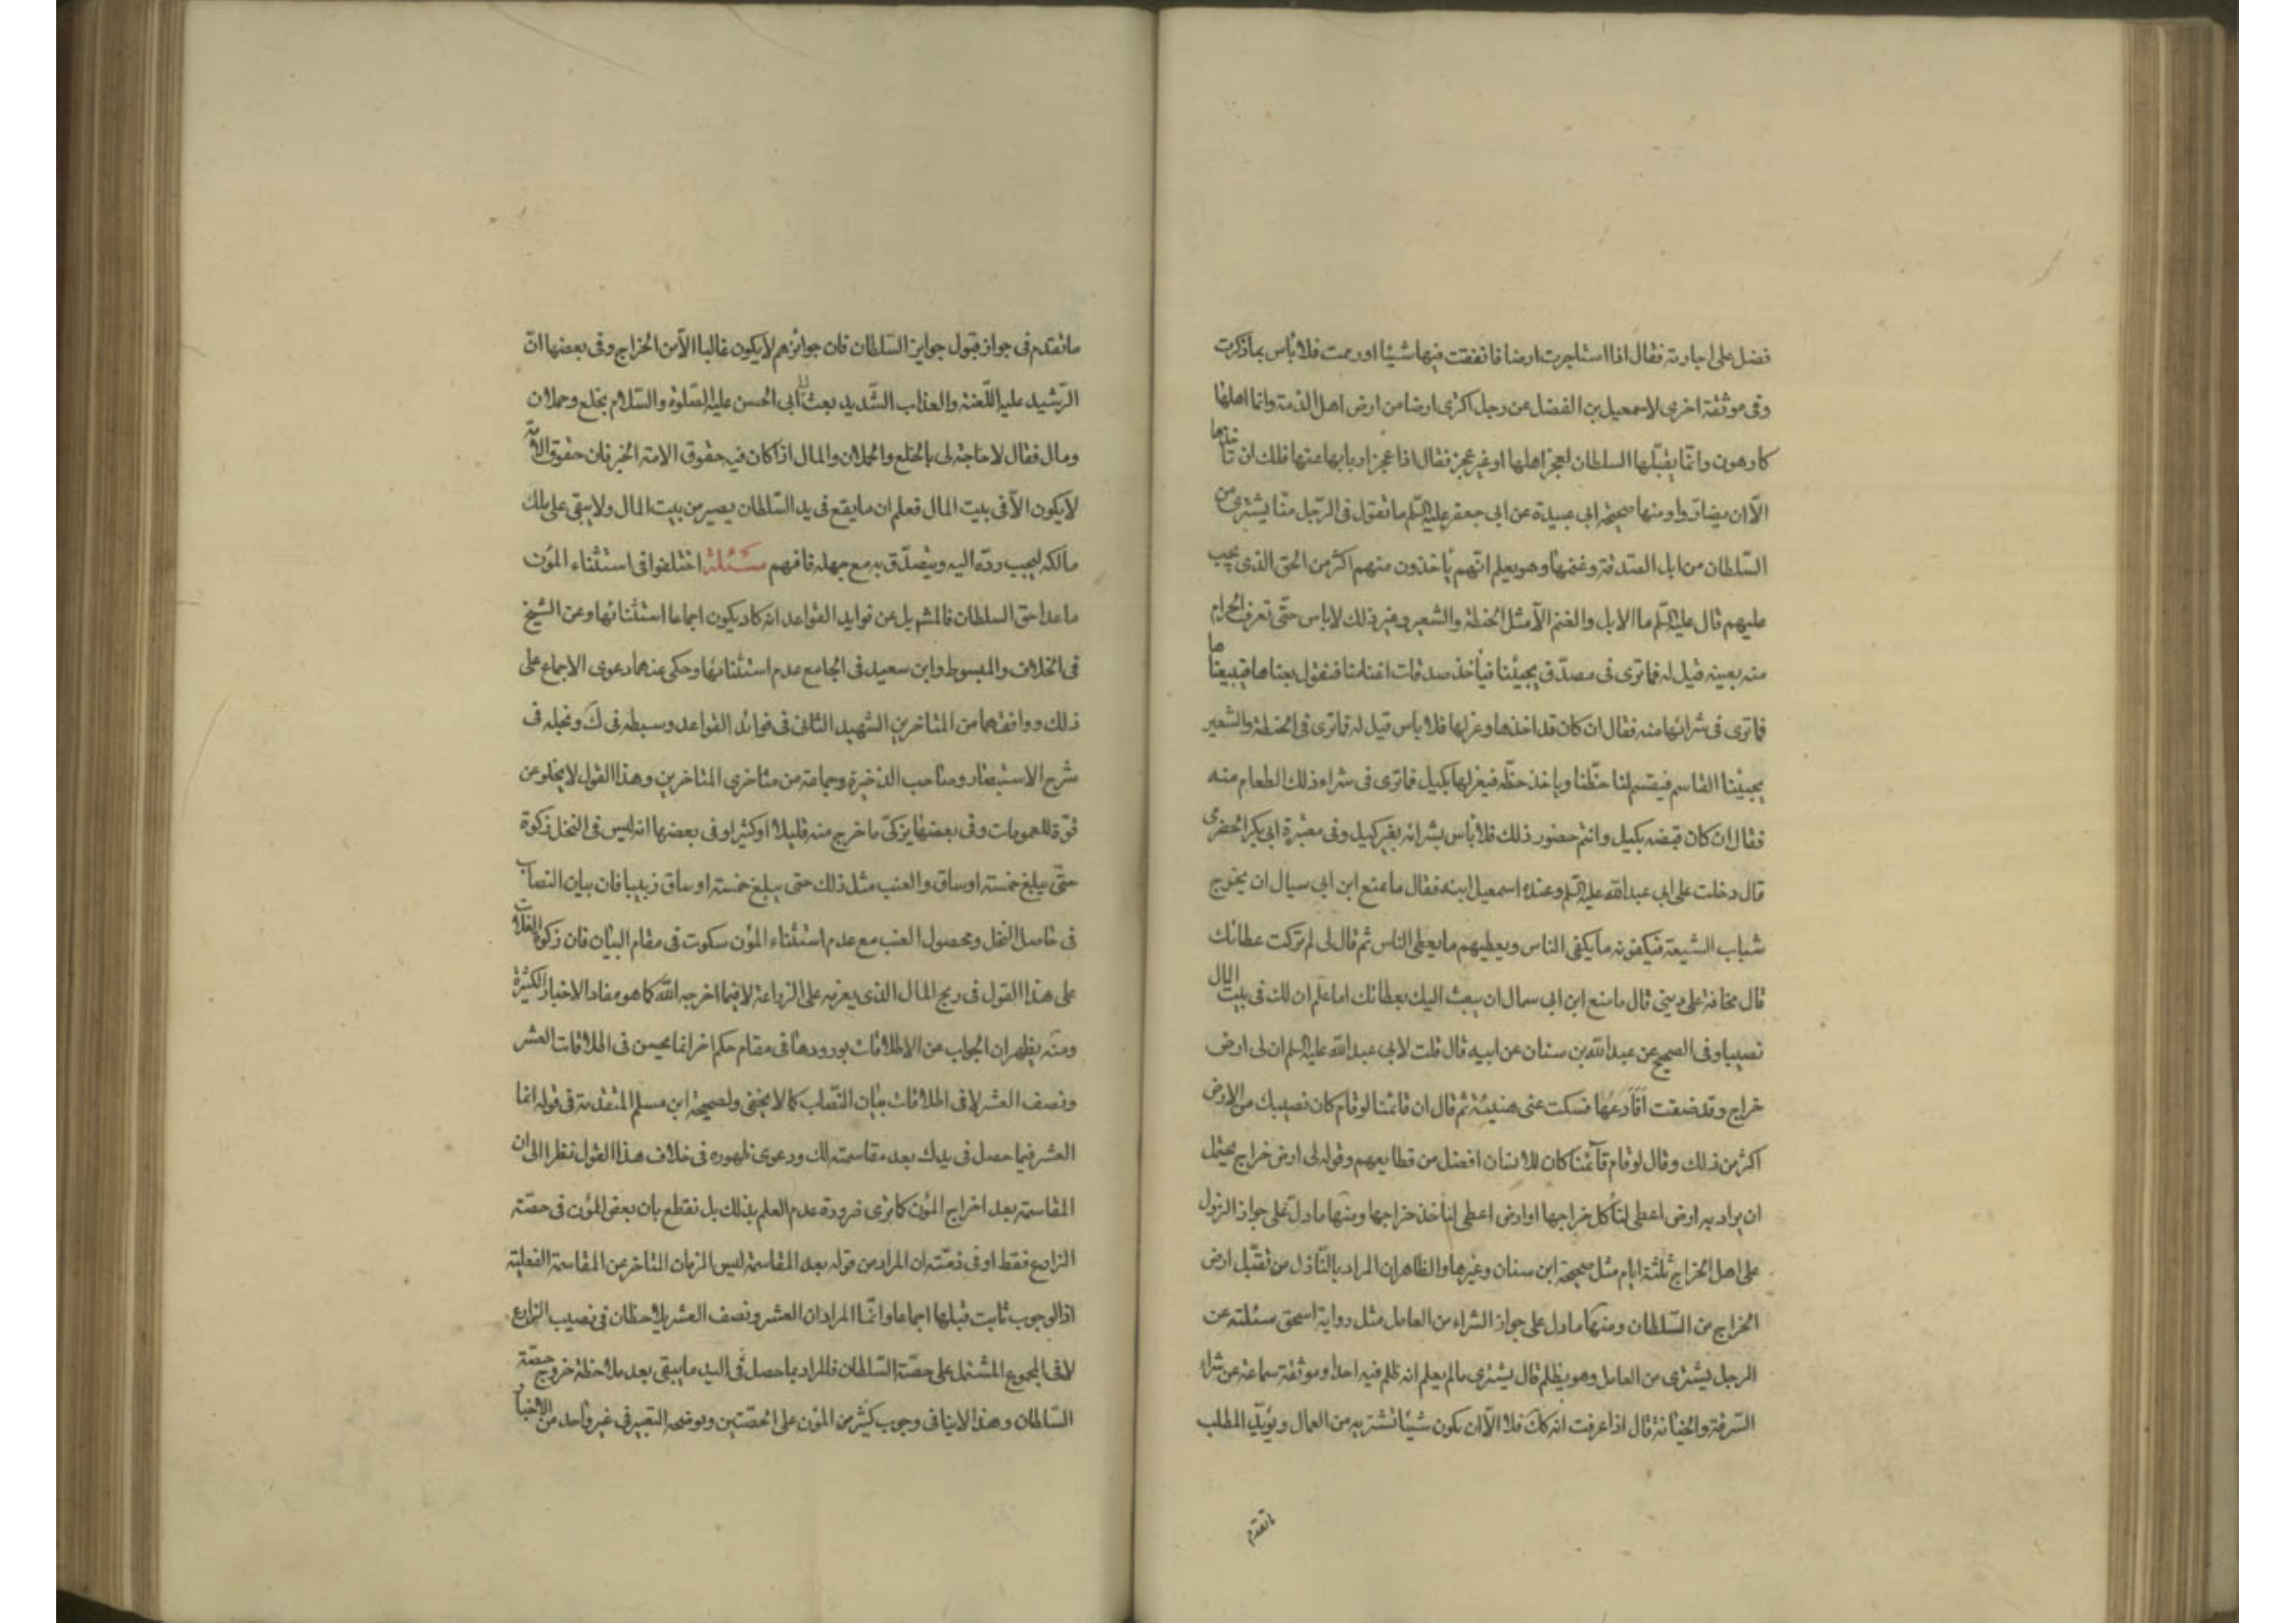 فضل على اجارته فقال اذا استاجرت ارضا فانفقت فيها شيئا او رممت فلا باس بما ذكرت
وفى موثقة اخرى لاسمعيل بن الفضل عن رجل اكترى ارضا من ارض اهل الذمة وانما اهلها
كارهون وانّما يقبّلها السلطان لعجز اهلها او غير عجز فقال اذا عجز اربابها عنها فلك ان تاخذها
الّا ان يضارّوا ومنها صحيحة ابى عبيدة عن ابى جعفر عليه السّلم ما تقول فى الرّجل منّا يشترى من
السّلطان من ابل الصّدقة وغنمها وهو يعلم انّهم يأخذون منهم اكثر من الحق الذى يجب
عليهم قال عليه السّلم ما الابل والغنم الّا مثل الحنطة والشعير وغير ذلك لا باس حتّى تعرف الحرام
منه بعينه قيل له فما ترى فى مصدّق يجيئنا فيأخذ صدقات اغنامنا فنقول بعناها فيبيعناها
فما ترى فى شرائها منه فقال ان كان قد اخذها وعزلها فلا باس قيل له فما ترى فى الحنطة والشعير
يجيئنا القاسم فيقسم لنا حظّنا وياخذ حظّه فيعزلها بكيل فما ترى فى شراء ذلك الطعام منه
فقال ان كان قبضه بكيل وانتم حضور ذلك فلا بأس بشرائه بغير كيل وفى معتبرة ابى بكر الحضرمى
قال دخلت على ابى عبد الله عليه السّلم وعنده اسمعيل ابنه فقال ما يمنع ابن ابى سيال ان يخرج
شباب الشيعة فيكفونه ما يكفى الناس ويعطيهم ما يعطى الناس ثم قال لى لم تركت عطائك
قال مخافة على دينى قال ما منع ابن ابى سمال ان يبعث اليك بعطائك اما علم ان لك فى بيت المال
نصيبا وفى الصحيح عن عبد الله بن سنان عن ابيه قال قلت لابى عبد الله عليه السلم ان لى ارض
خراج وقد ضقت افادعها فسكت عنى هنيئة ثم قال ان قائمنا لو قام كان نصيبك من الارض
اكثر من ذلك وقال لو قام قائمنا كان للانسان افضل من قطايعهم وقوله لى ارض خراج يحتمل
ان يراد به ارض اعطى لنا كل خراجها او ارض اعطى لنا خذ خراجها ومنها ما دلّ على جواز النزول
على اهل الخراج ثلثة ايام مثل صحيحة ابن سنان وغيرها والظاهر ان المراد بالنّازل من تقبّل ارض
الخراج من السّلطان ومنها ما دل على جواز الشراء من العامل مثل رواية اسحق مسئلته عن
الرجل يشترى من العامل وهو يظلم قال يشترى ما لم يعلم انه ظلم فيه احدا وموثقة سماعة عن شراء
السّرقة والخيانة قال اذا عرفت انه كك فلا الّا ان يكون شيئا تشتريه من العمال ويؤيّد المطلب
ما تقدم
ما تقدم فى جواز قبول جوايز السّلطان فان جوائزهم لا يكون غالبا الّا من الخراج وفى بعضها انّ
الرّشيد عليه اللّعنة والعذاب الشّديد بعث الى ابى الحسن عليه الصّلوة والسّلام بخلع وحملان
ومال فقال لا حاجة لى بالخلع والحملان والمال اذا كان فيه حقوق الامة الخبر فان حقوق الامّة
لا يكون الّا فى بيت المال فعلم ان ما يقع فى يد السّلطان يصير من بيت المال ولا يبقى على ملك
مالكه ليجب ردّه اليه ويتصدّق به مع جهله فافهم مسئلة اختلفوا فى استثناء المؤن
ما عدا حق السلطان فالمشهور بل عن فوايد القواعد انه كاد يكون اجماعا استثنائها وعن الشيخ
فى الخلاف والمبسوط وابن سعيد فى الجامع عدم استثنائها وحكى عنهما دعوى الاجماع على
ذلك ووافقهما من المتاخرين الشهيد الثانى فى فوائد القواعد وسبطه فى ك ونجله فى
شرح الاستبصار وصاحب الذخيرة وجماعة من متاخرى المتاخرين وهذا القول لا يخلو عن
قوّة للعمومات وفى بعضها يزكّى ما خرج منه قليلا او كثيرا وفى بعضها انه ليس فى النخل زكوة
حتّى يبلغ خمسة اوساق والعنب مثل ذلك حتى يبلغ خمسة اوساق زبيبا فان بيان النصاب
فى حاصل النخل ومحصول العنب مع عدم استثناء المؤن سكوت فى مقام البيان فان زكوة الغلات
على هذا القول فى ربح المال الذى يغرمه على الزراعة لا فيما اخرجه اللّه كما هو مفاد الاخبار الكثيرة
ومنه يظهر ان الجواب عن الاطلاقات بورودها فى مقام حكم اخر انما يحسن فى اطلاقات العشر
ونصف العشر لا فى اطلاقات بيان النّصاب كما لا يخفى ولصحيحة ابن مسلم المتقدمة فى قوله انما
العشر فيما حصل فى يدك بعد مقاسمته لك ودعوى ظهوره فى خلاف هذا القول نظرا الى ان
المقاسمة بعد اخراج المؤن كما ترى ضرورة عدم العلم بذلك بل نقطع بان بعض المؤن فى حصّة
الزارع فقط او فى ذمّته ان المراد من قوله بعد المقاسمة ليس الزمان المتاخر عن المقاسمة الفعلية
اذ الوجوب ثابت قبلها اجماعا وانّما المراد ان العشر ونصف العشر يلاحظان فى نصيب الزارع
لا فى المجموع المشتمل على حصّة السّلطان فالمراد بما حصل فى اليد ما يبقى بعد ملاحظة خروج حصّة
السّلطان وهذا لا ينافى وجوب كثير من المؤن على الحصّتين ويوضحه التعبير فى غير واحد من الاخبار